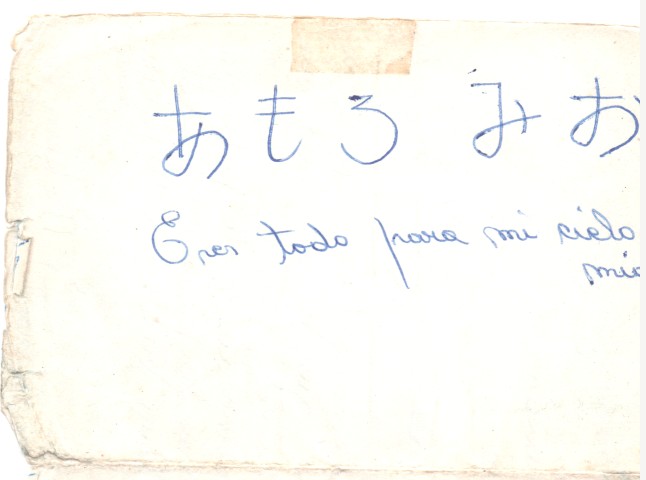 あもろ みお
Eres todo para mi cielo
mio